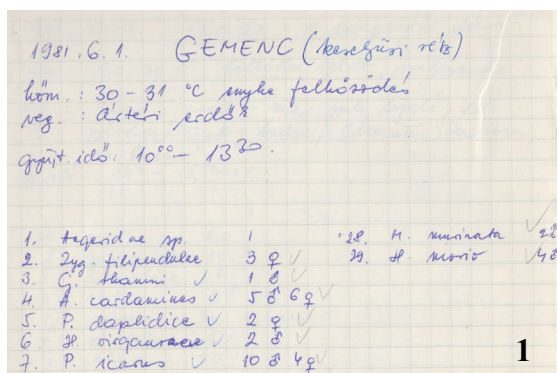 1981. 6. 1. GEMENC (keselyűsi rész)
hőm.: 30 – 31 °C enyhe felhősödés
veg.: ártéri erdők
gyűjt. idő: 10⁰⁰ – 13³⁰.
1. Aegeridae sp. 1
2. Zyg. filipendulae 3 ♀ ✓
3. ✓ 1 ♂ ✓
4. A. cardamines ✓ 5 ♂ 6 ♀
5. P. daplidice ✓ 2 ♀ ✓
6 H. virgaureae ✓ 2 ♂ ✓
7. P. icarus ✓ 10 ♂ 4 ♀ ✓
28. M. murinata ✓
29. H. morio ✓
1